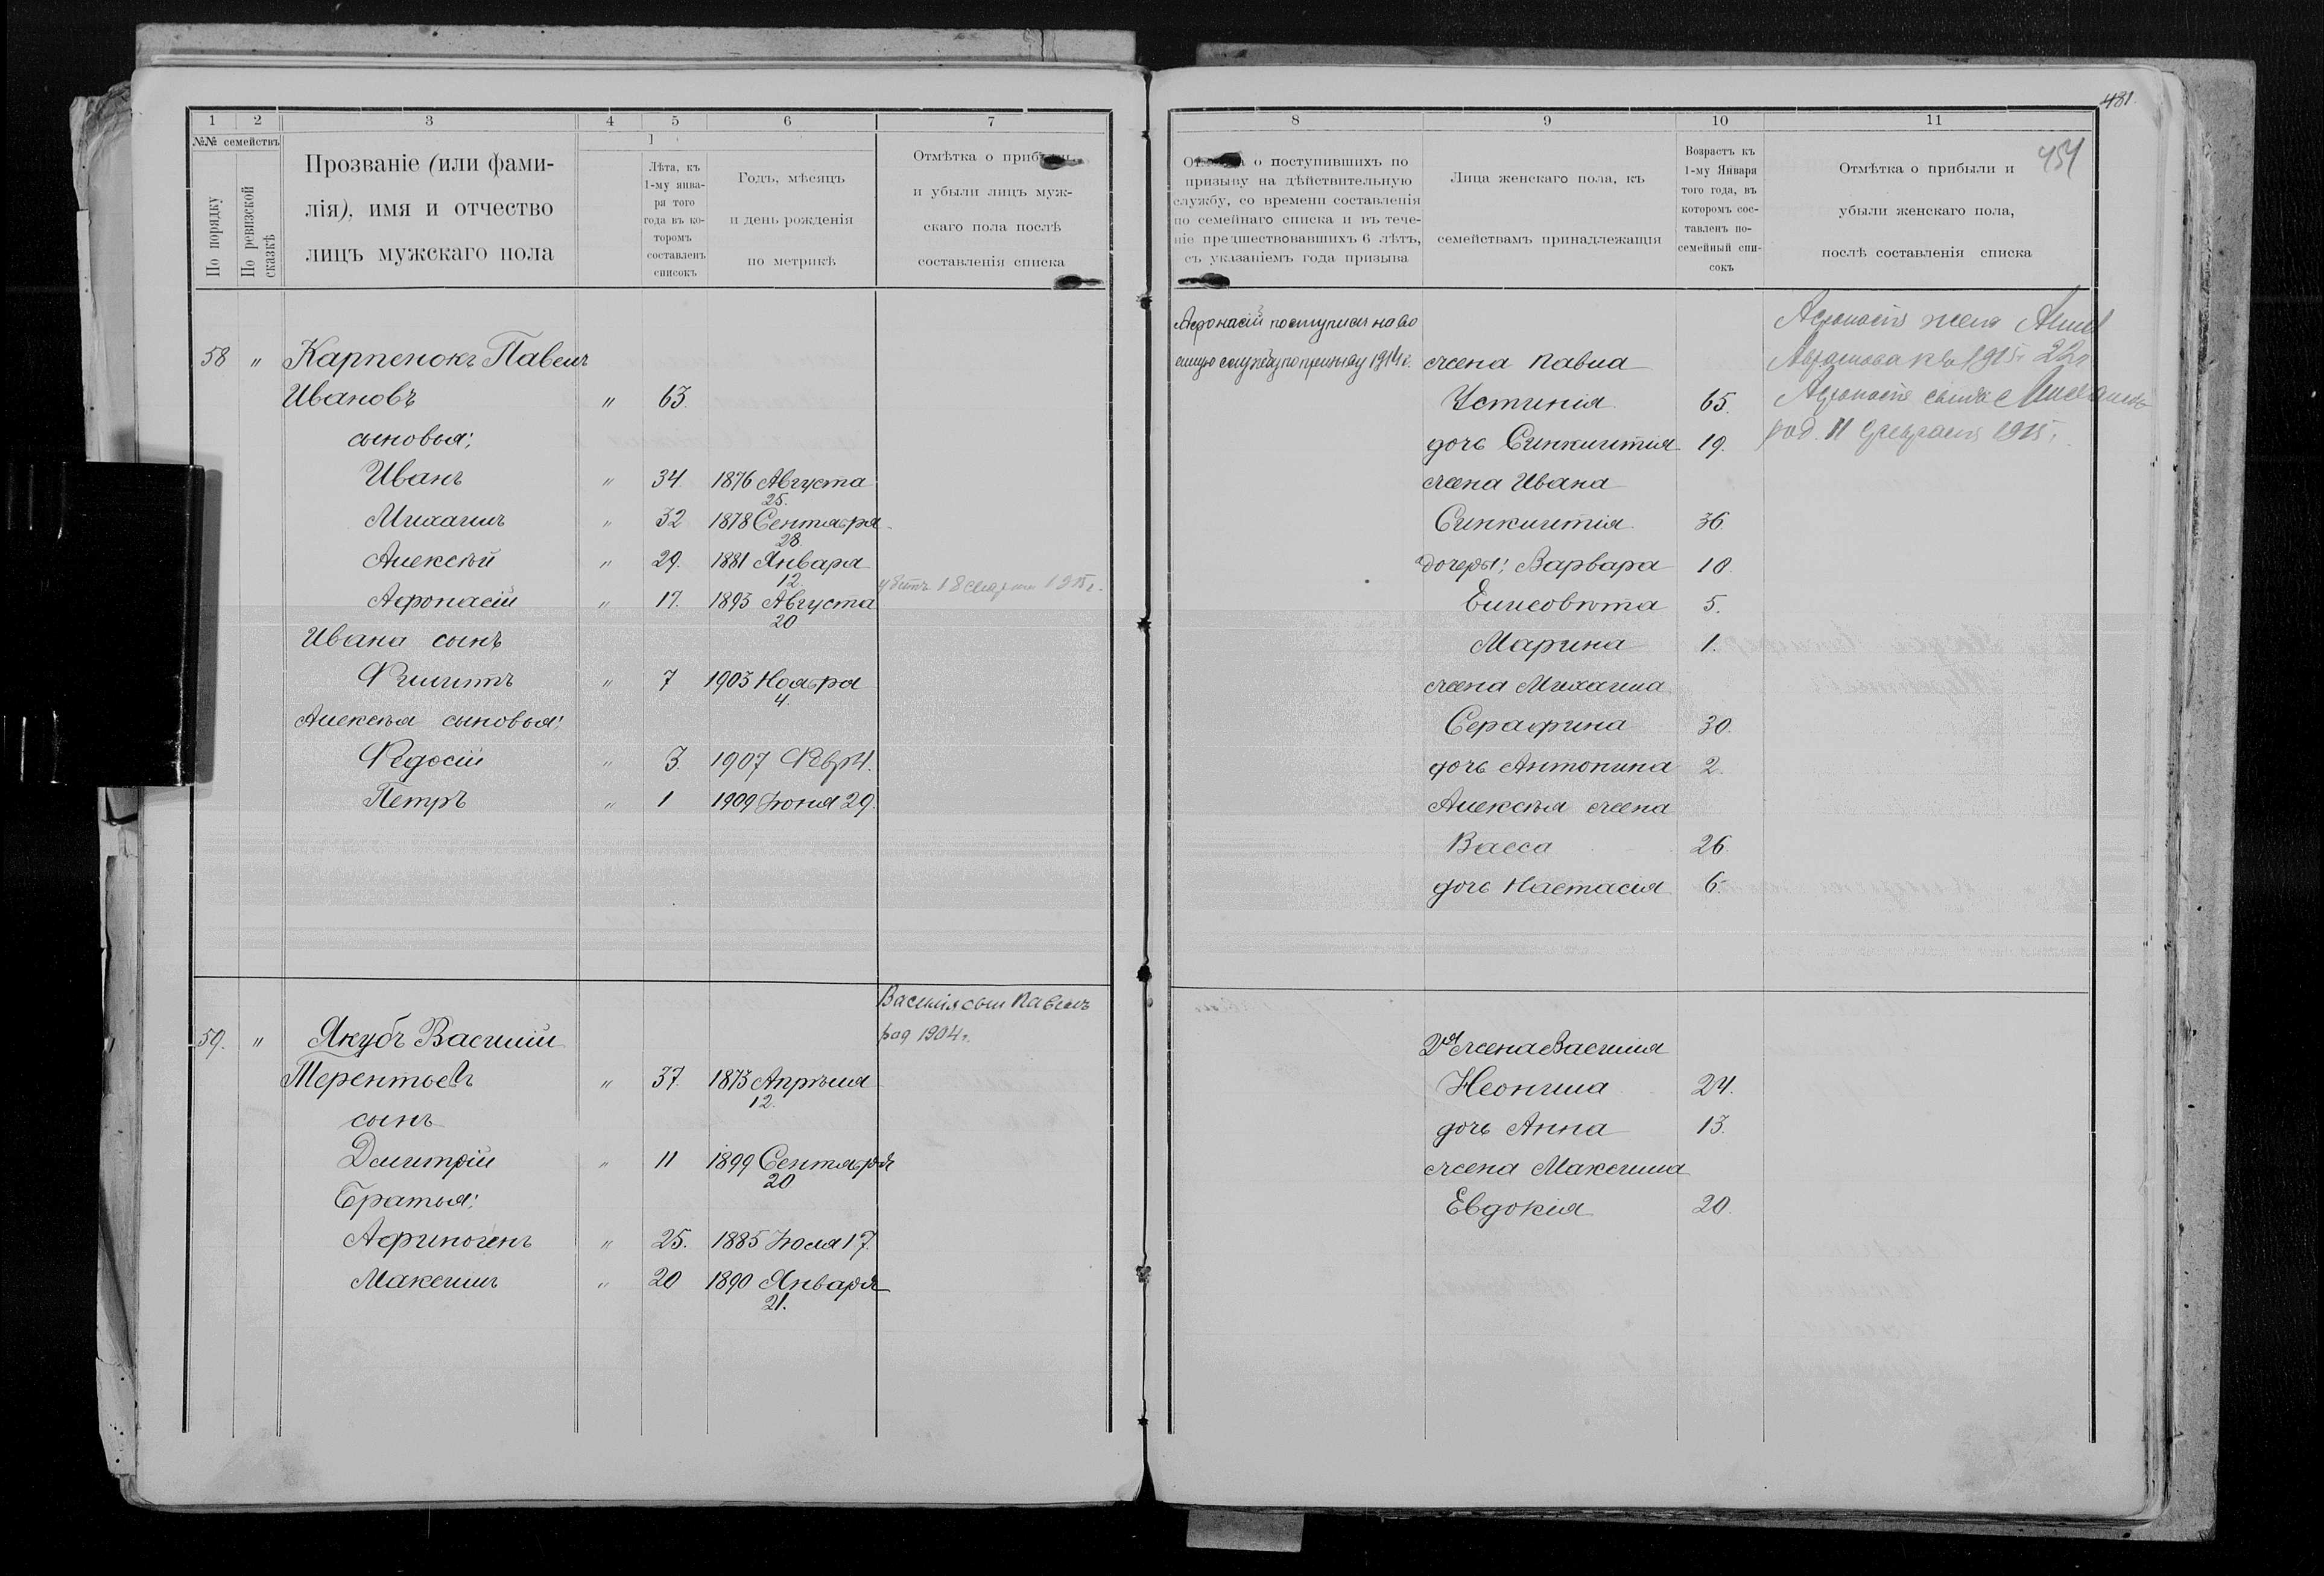 481.
454
1 2 3 4 5 6 7
№№ семействъ
По порядку
По ревизской сказкѣ
Прозваніе (или фами-
лія), имя и отчество
лицъ мужскаго пола
Лѣта, къ
1-му янва-
ря того
года въ ко-
торомъ
составленъ
списокъ
Годъ, мѣсяцъ
и день рожденія
по метрикѣ
Отмѣтка о прибыли
и убыли лицъ муж-
скаго пола послѣ
составленія списка
58 " Карпенокъ Павелъ
Ивановъ " 63.
сыновья:
Иванъ " 34. 1876 Августа
25.
Михаилъ " 32 1878 Сентября
28
Алексѣй " 29. 1881 Января
12.
Афонасій " 17. 1893 Августа
20
убитъ 18 1915 г.
Ивана сынъ
Филипъ " 7 1903 Ноября
4.
Алексѣя сыновья:
Федосій " 3. 1907 Февр 4.
Петръ " 1 1909 Іюня 29.
Василія сын Павелъ
род 1904 г.
59. " Якубъ Василій
Терентьевъ " 37. 1873 Апрѣля
12.
сынъ
Дмитрій " 11 1899 Сентября
20
Братья:
Афиногенъ " 25. 1885 Іюля 17.
Максимъ " 20 1890 Января
21.
8 9 10 11
Отмѣтка о поступившихъ по
призыву на дѣйствительную
службу, со времени составленія
по семейнаго списка и въ тече-
ніе предшествовавшихъ 6 лѣтъ,
съ указаніемъ года призыва
Лица женскаго пола, къ
семействамъ принадлежащія
Возрастъ къ
1-му Января
того года, въ
которомъ сос-
тавленъ по-
семейный спи-
сокъ
Отмѣтка о прибыли и
убыли женскаго пола,
послѣ составленія списка
Афонасій поступилъ на во
енную службу по призыву 1914 г.
Афонасія жена Анна
Абрамова къ 1915 г 22 л
Афонасія сынъ Михаилъ
род. 11 февраля 1915 г.
жена Павла
Устинія 65.
дочь Синклитія 19.
жена Ивана
Синклитія 36
дочеры: Варвара 10
Елисовѣта 5.
Марина 1.
жена Михаила
Серафима 30.
дочь Антонина 2.
Алексѣя жена
Васса 26
дочь Настасія 6.
2ая жена Василія
Неонила 24.
дочь Анна 13.
жена Максима
Евдокія 20.